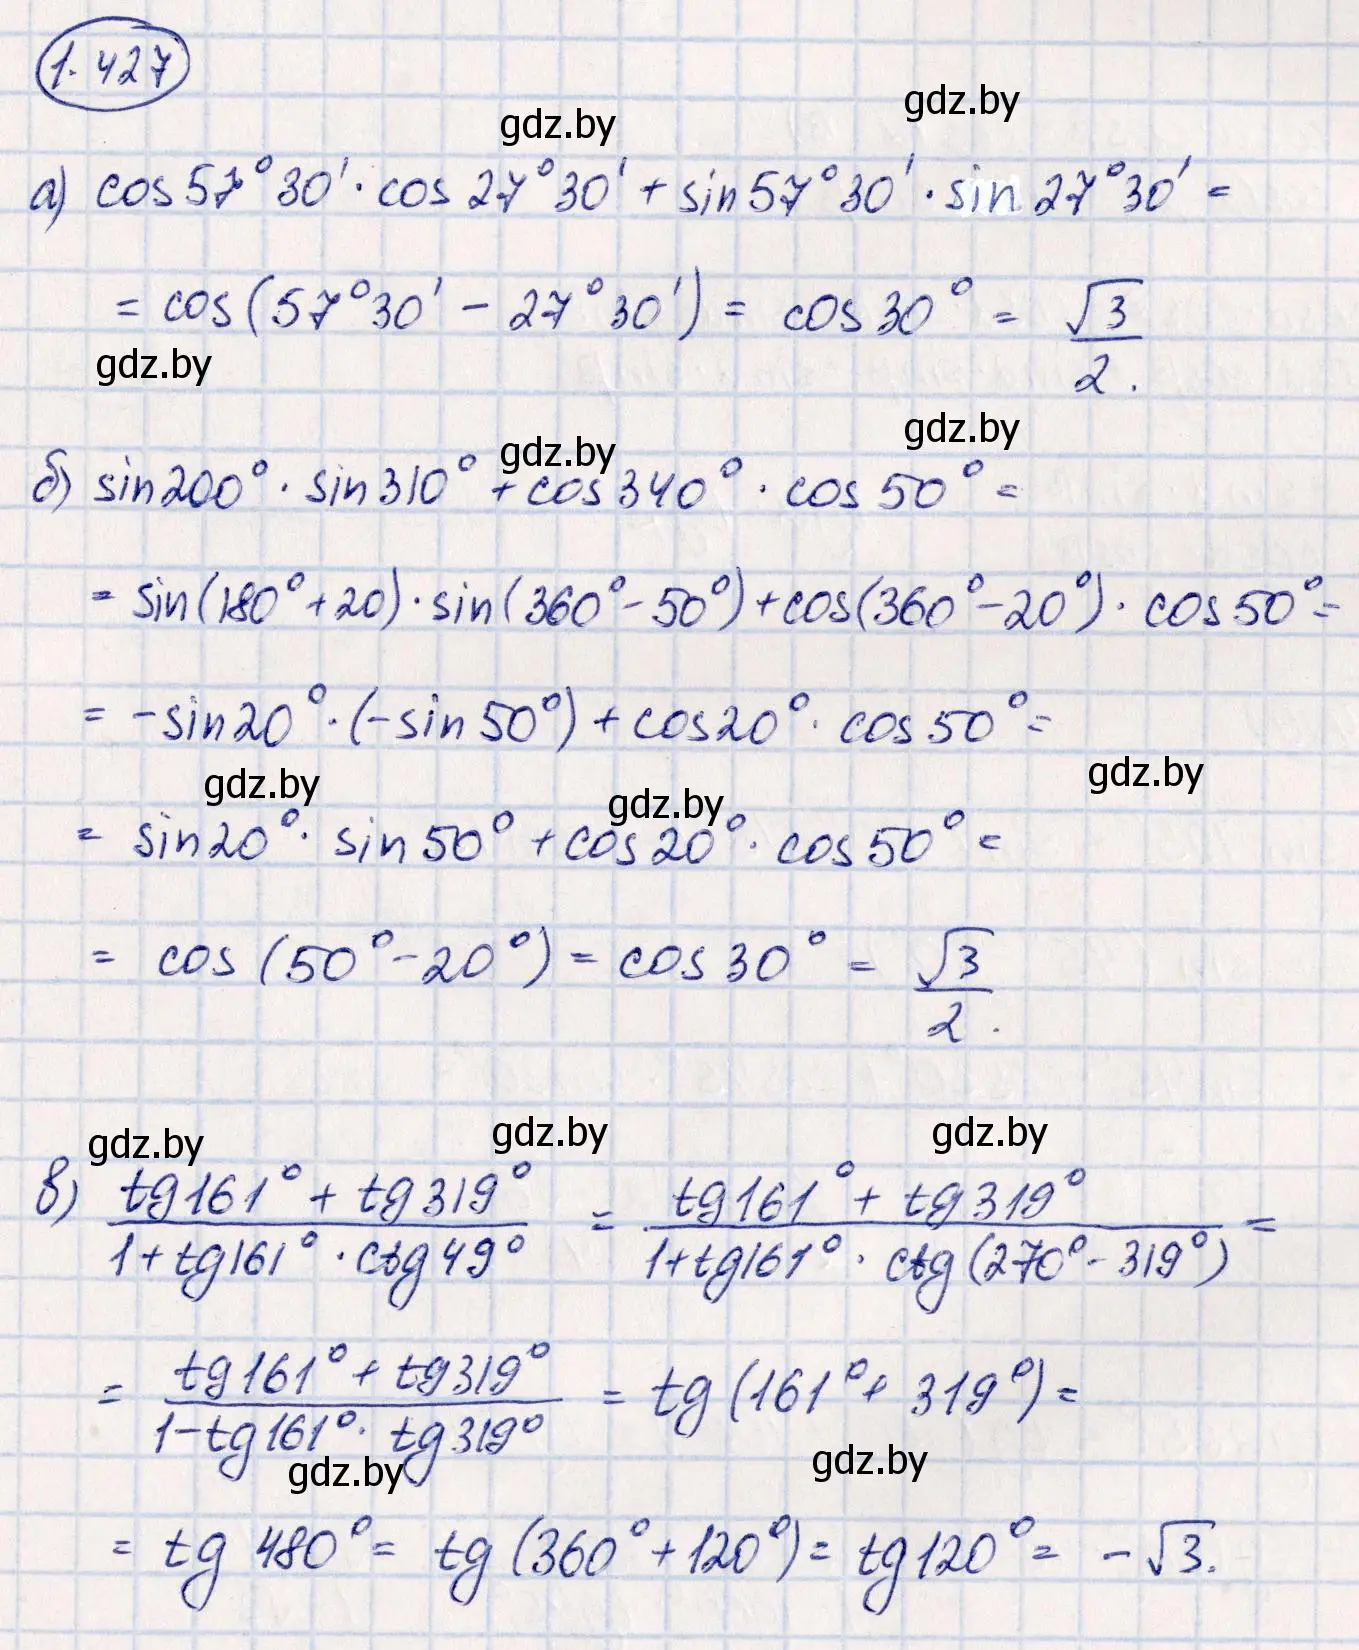 1.427
gdz.by
gdz.by
а) cos57°30'·cos27°30'+sin57°30'·sin27°30'=
=cos(57°30'-27°30')=cos30°=√3/2.
gdz.by
gdz.by
gdz.by
б) sin200°·sin310°+cos340°·cos50°=
=sin(180°+20)·sin(360°-50°)+cos(360°-20°)·cos50°=
=-sin20°·(-sin50°)+cos20°·cos50°=
gdz.by
gdz.by
gdz.by
=sin20°·sin50°+cos20°·cos50°=
=cos(50°-20°)=cos30°=√3/2.
gdz.by
gdz.by
gdz.by
в) (tg161°+tg319°)/(1+tg161°·ctg49°)=(tg161°+tg319°)/(1+tg161°·ctg(270°-319°))=
=(tg161°+tg319°)/(1-tg161°·tg319°)=tg(161°+319°)=
gdz.by
gdz.by
=tg480°=tg(360°+120°)=tg120°=-√3.